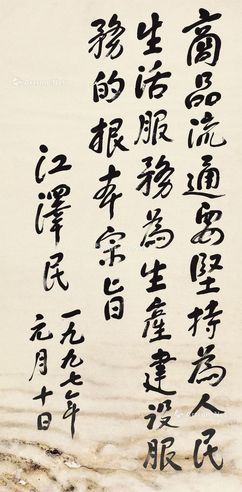 商品流通要堅持為人民
生活服務為生產建设服
務的根本宗旨
江澤民
一九九七年
元月十日